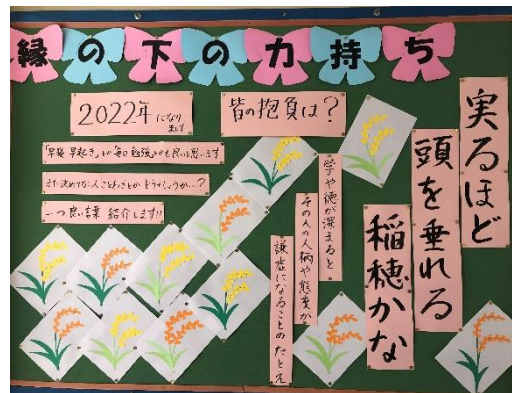 縁の下の力持ち
2022年になります
皆の抱負は?
「早寝 早起き」とか「毎日勉強」とかも良いと思います
まだ決めてない人ことわざとかどうでしょうか…?
一つ良い言葉 紹介します!!
実るほど
頭を垂れる
稲穂かな
学や徳が深まると
その人の人柄や態度が
謙虚になることのたとえ